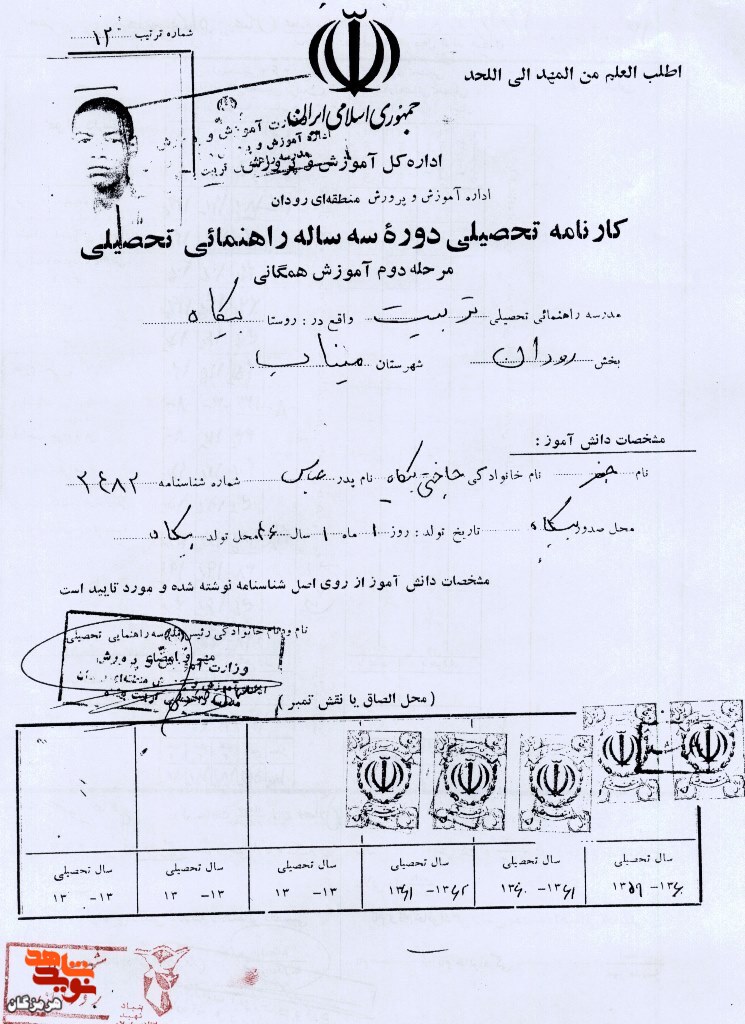 شماره ترتیب ۱۲
اطلب العلم من المهد الی اللحد
جمهوری اسلامی ایران
اداره کل آموزش و پرورش
اداره آموزش و پرورش منطقه‌ای رودان
کارنامه تحصیلی دورهٔ سه ساله راهنمائی تحصیلی
مرحله دوم آموزش همگانی
مدرسه راهنمائی تحصیلی تربیت واقع در : روستا بیکاه
بخش رودان شهرستان میناب
مشخصات دانش آموز :
نام نام خانوادگی بیکاه نام پدر عباس شماره شناسنامه ۲۴۸۲
محل صدور بیکاه تاریخ تولد : روز ۱ ماه ۱ سال ۴۶ محل تولد بیکاه
مشخصات دانش آموز از روی اصل شناسنامه نوشته شده و مورد تایید است
نام و نام خانوادگی رئیس مدرسه راهنمایی تحصیلی
مهر و امضای
وزارت آموزش و پرورش
( محل الصاق یا نقش تمبر )
سال تحصیلی سال تحصیلی سال تحصیلی سال تحصیلی سال تحصیلی سال تحصیلی
۱۳۵۹ -۱۳۶۰ ۱۳۶۰ -۱۳۶۱ ۱۳۶۱ -۱۳۶۲ ۱۳ -۱۳ ۱۳ -۱۳ ۱۳ -۱۳
نوید شاهد
هرمزگان